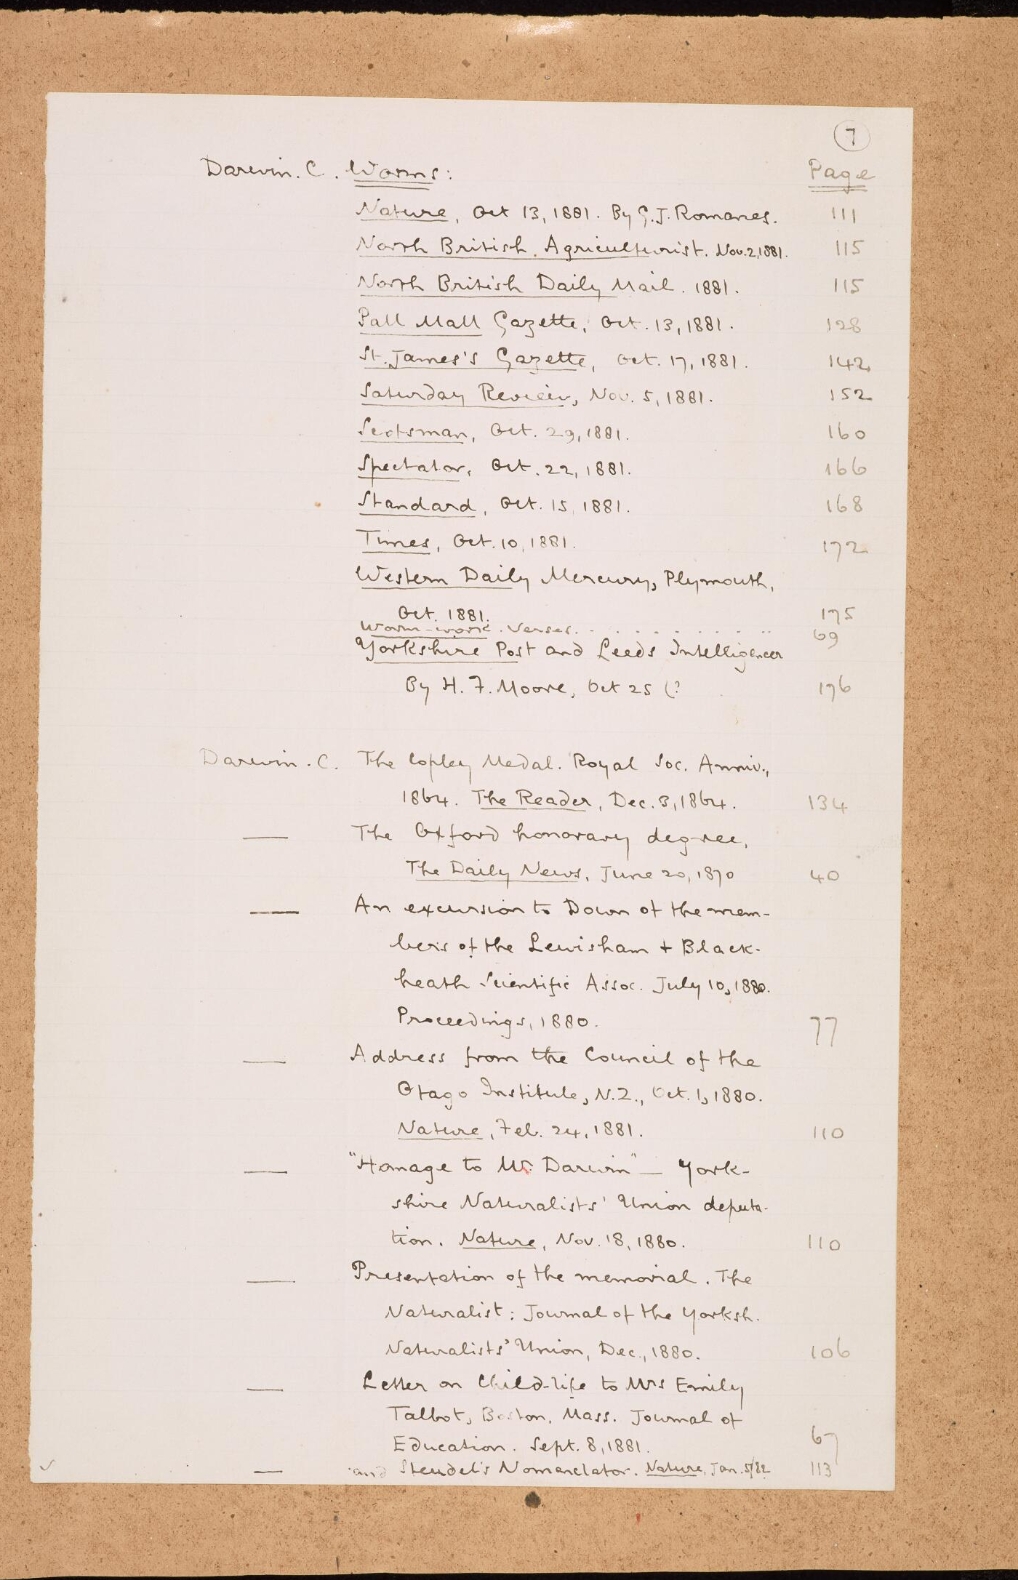 7
Darwin. C. Worms: Page
Nature, Oct 13, 1881. By G. J. Romanes. 111
North British Agriculturist. Nov. 2, 1881. 115
North British Daily Mail. 1881. 115
Pall Mall Gazette, Oct. 13, 1881. 128
St. James's Gazette, Oct. 17, 1881. 142
Saturday Review, Nov. 5, 1881. 152
Scotsman, Oct. 29, 1881. 160
Spectator, Oct. 22, 1881. 166
Standard, Oct. 15, 1881. 168
Times, Oct. 10, 1881. 172
Western Daily Mercury, Plymouth,
Oct. 1881. 175
Worm-work. Verses. . . . . . . . . 69
Yorkshire Post and Leeds Intelligencer
By H. F. Moore, Oct 25 (? 176
Darwin. C. The Copley Medal. Royal Soc. Anniv.,
1864. The Reader, Dec. 3, 1864. 134
— The Oxford honorary degree,
The Daily News, June 20, 1870 40
— An excursion to Down of the mem-
bers of the Lewisham + Black-
heath Scientific Assoc. July 10, 1880.
Proceedings, 1880. 77
— Address from the Council of the
Otago Institute, N.Z., Oct. 1, 1880.
Nature, Feb. 24, 1881. 110
— "Homage to Mr. Darwin" — York-
shire Naturalists' Union deputa-
tion. Nature, Nov. 18, 1880. 110
— Presentation of the memorial. The
Naturalist: Journal of the Yorksh.
Naturalists' Union, Dec., 1880. 106
— Letter on Child-life to Mrs Emily
Talbot, Boston, Mass. Journal of
Education. Sept. 8, 1881. 67
— and Steudel's Nomenclator. Nature, Jan. 5/82 113